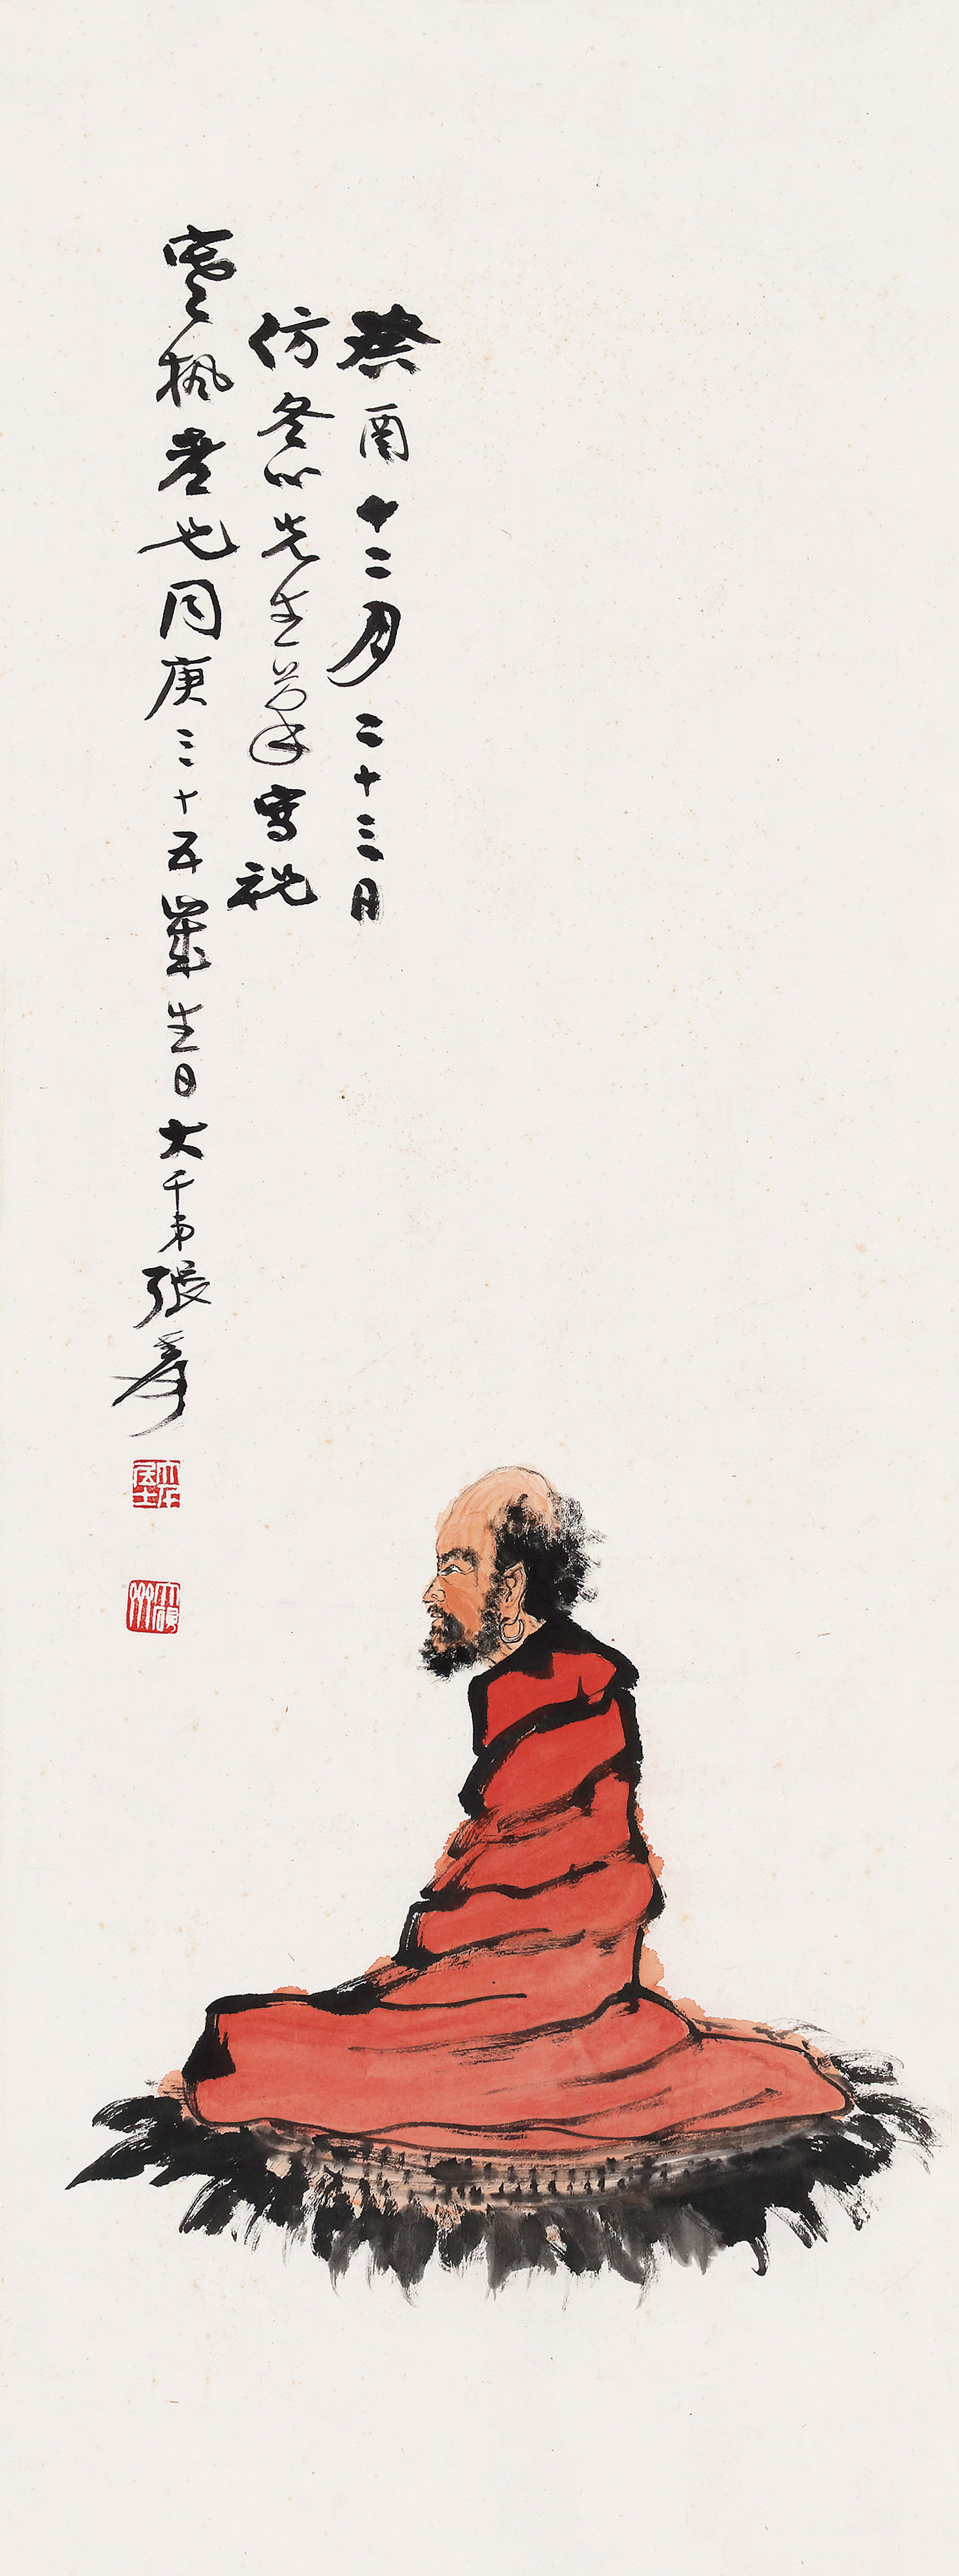 癸酉十二月二十三日
仿冬心先生筆寫祝
楓老也同庚三十五歲生日大千弟張爰
大千居士